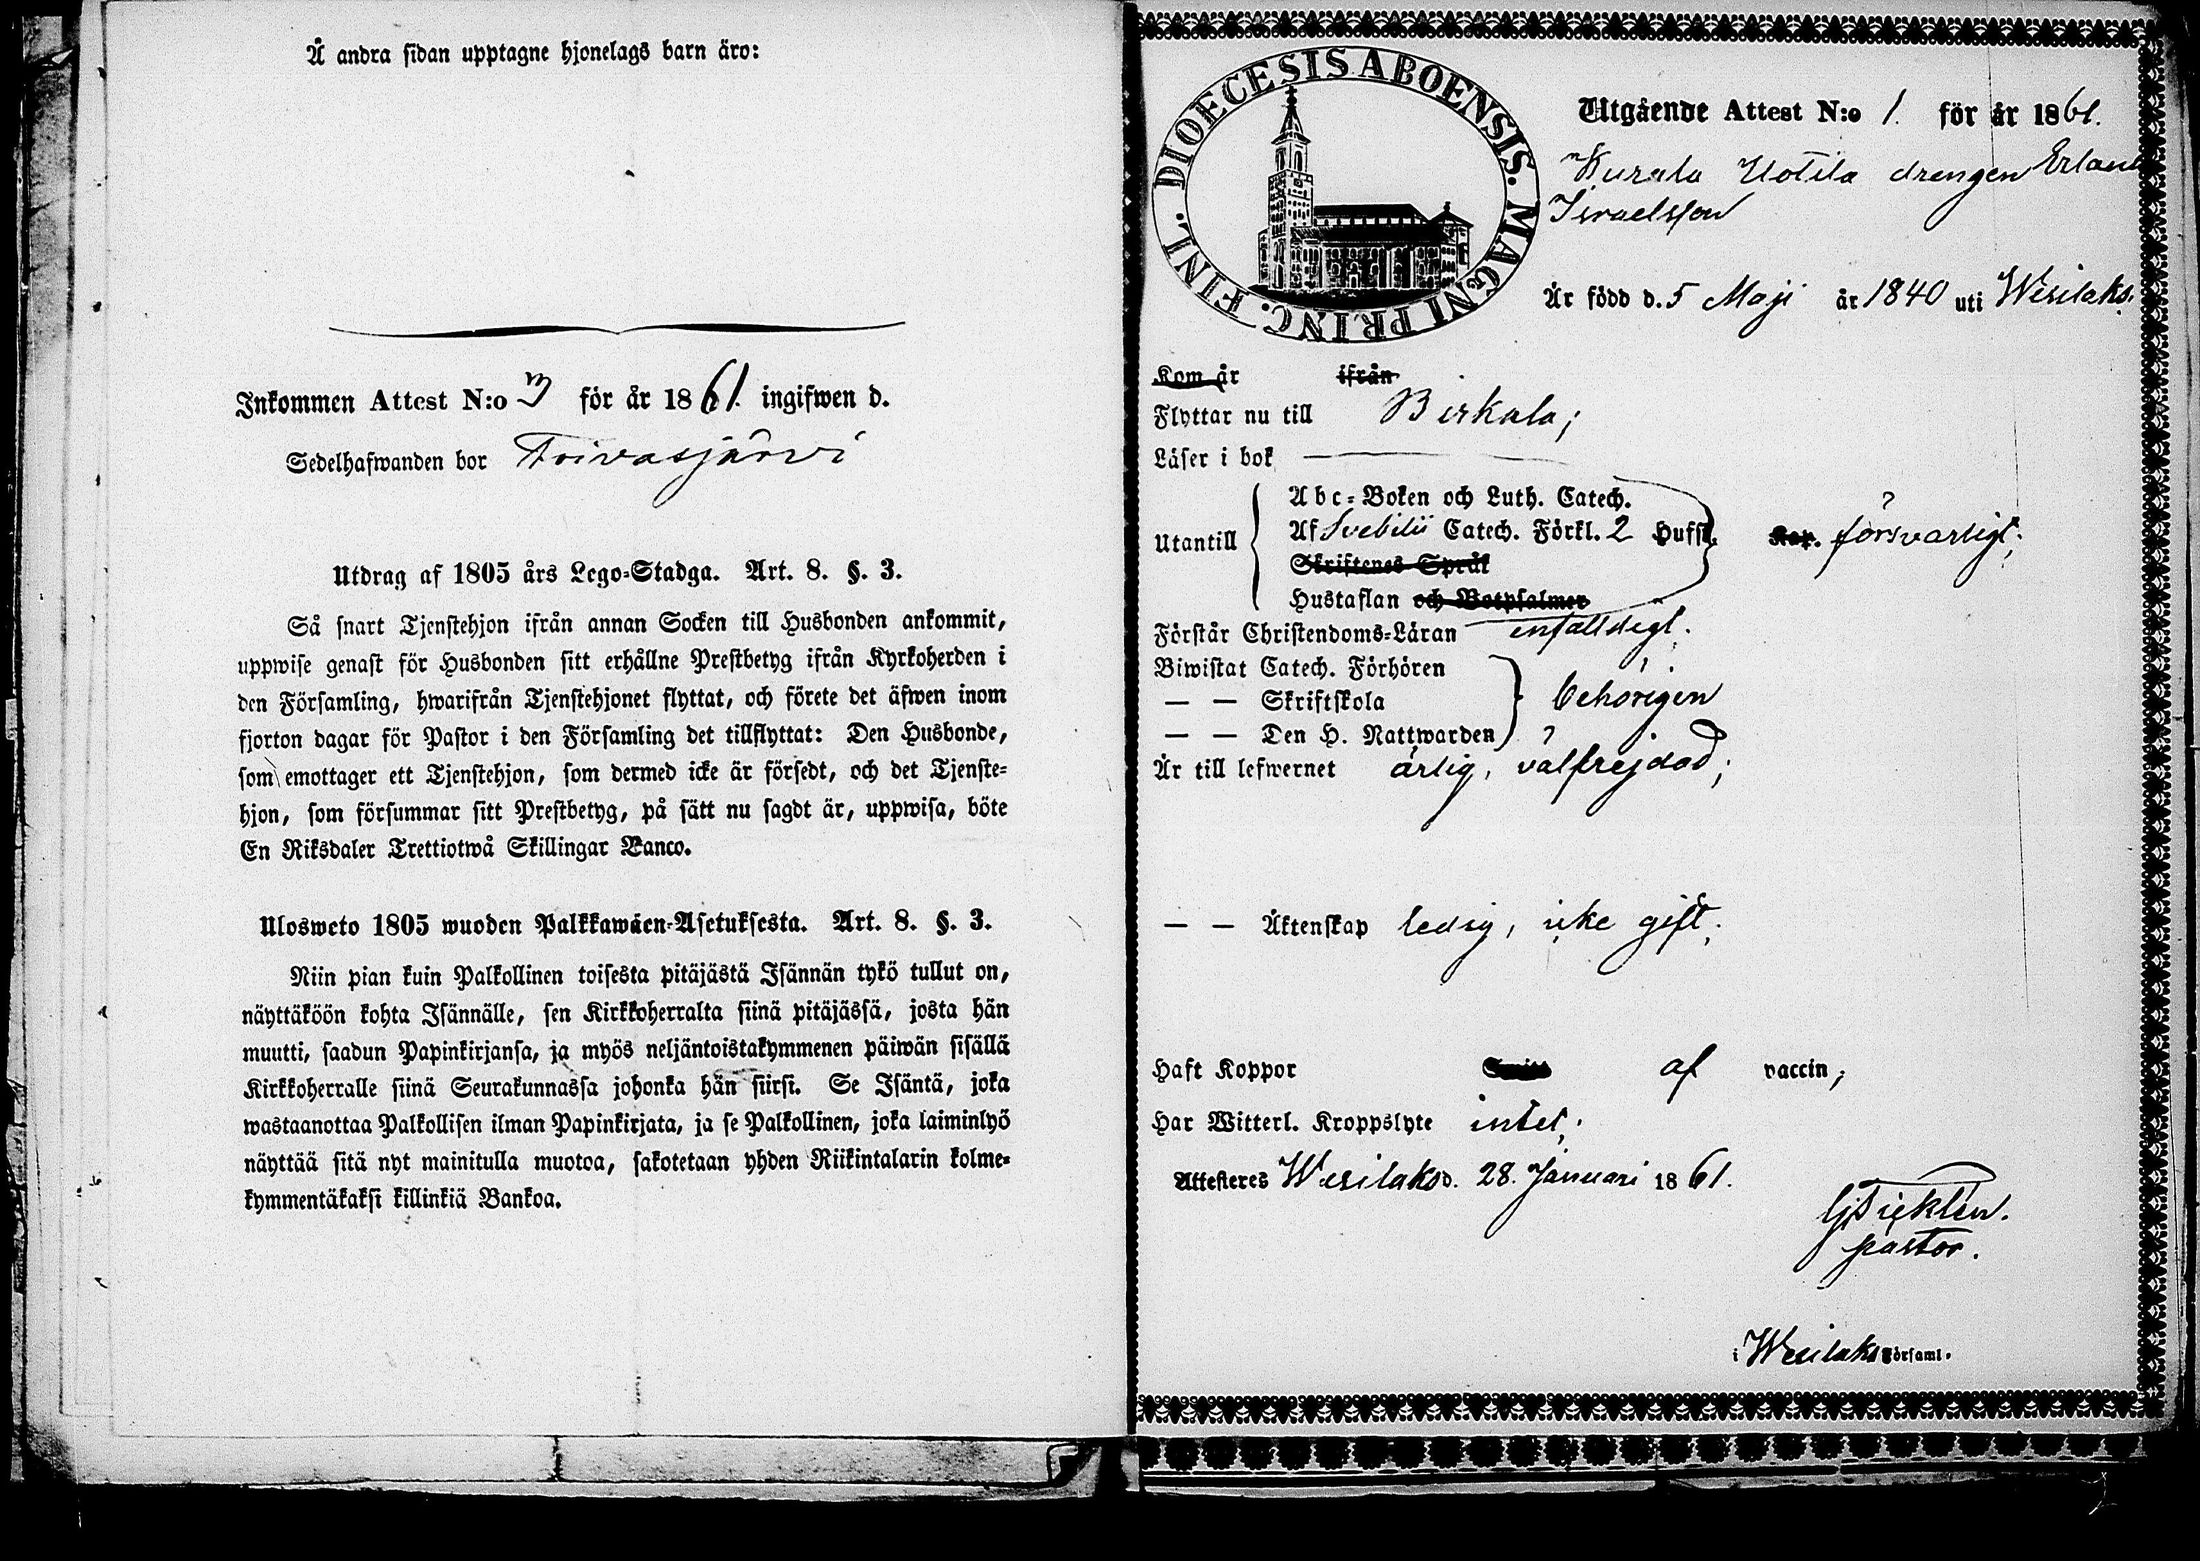 Å andra sidan upptagne hjonelags barn äro:
Inkommen Attest N:o 3 för år 1861. ingifwen d.
Sedelhafwanden bor Toivasjärvi
Utdrag af 1805 års Lego-Stadga. Art. 8. §. 3.
Så snart Tjenstehjon ifrån annan Socken till Husbonden ankommit,
uppwise genast för Husbonden sitt erhållne Prestbetyg ifrån Kyrkoherden i
den Församling, hwarifrån Tjenstehjonet flyttat, och förete det äfwen inom
fjorton dagar för Pastor i den Församling det tillflyttat: Den Husbonde,
som emottager ett Tjenstehjon, som dermed icke är försedt, och det Tjenste-
hjon, som försummar sitt Prestbetyg, på sätt nu sagdt är, uppwisa, böte
En Riksdaler Trettiotwå Skillingar Banco.
Ulosweto 1805 wuoden Palkkawäen-Asetuksesta. Art. 8. §. 3.
Niin pian kuin Palkollinen toisesta pitäjästä Isännän tykö tullut on,
näyttäköön kohta Isännälle, sen Kirkkoherralta siinä pitäjässä, josta hän
muutti, saadun Papinkirjansa, ja myös neljäntoistakymmenen päiwän sisällä
Kirkkoherralle siinä Seurakunnassa johonka hän siirsi. Se Isäntä, joka
wastaanottaa Palkollisen ilman Papinkirjata, ja se Palkollinen, joka laiminlyö
näyttää sitä nyt mainitulla muotoa, sakotetaan yhden Riikintalarin kolme-
kymmentäkaksi killinkiä Bankoa.
DIOECESIS ABOENSIS. MAGNI PRINC. FINL.
Utgående Attest N:o 1. för år 1861.
Kurala Uotila drengen Erland
Israelsson
Är född d. 5 Maji år 1840 uti Wesilaks.
Kom år ifrån
Flyttar nu till Birkala;
Läser i bok
Abc-Boken och Luth. Catech.
Utantill Af Svebilii Catech. Förkl. 2 Hufst. Kap. försvarligt;
Skriftenes Språk
Hustaflan och Botpsalmer
Förstår Christendoms-Läran enfalldigt.
Biwistat Catech. Förhören
— — Skriftskola behörigen
— — Den H. Nattwarden
Är till lefwernet ärlig, välfrejdad;
— — Äktenskap ledig, icke gift;
Haft Koppor af vaccin;
Har Witterl. Kroppslyte intet;
Attesteres Wesilaks d. 28. Januari 1861.
pastor.
i Wesilaks Församl.